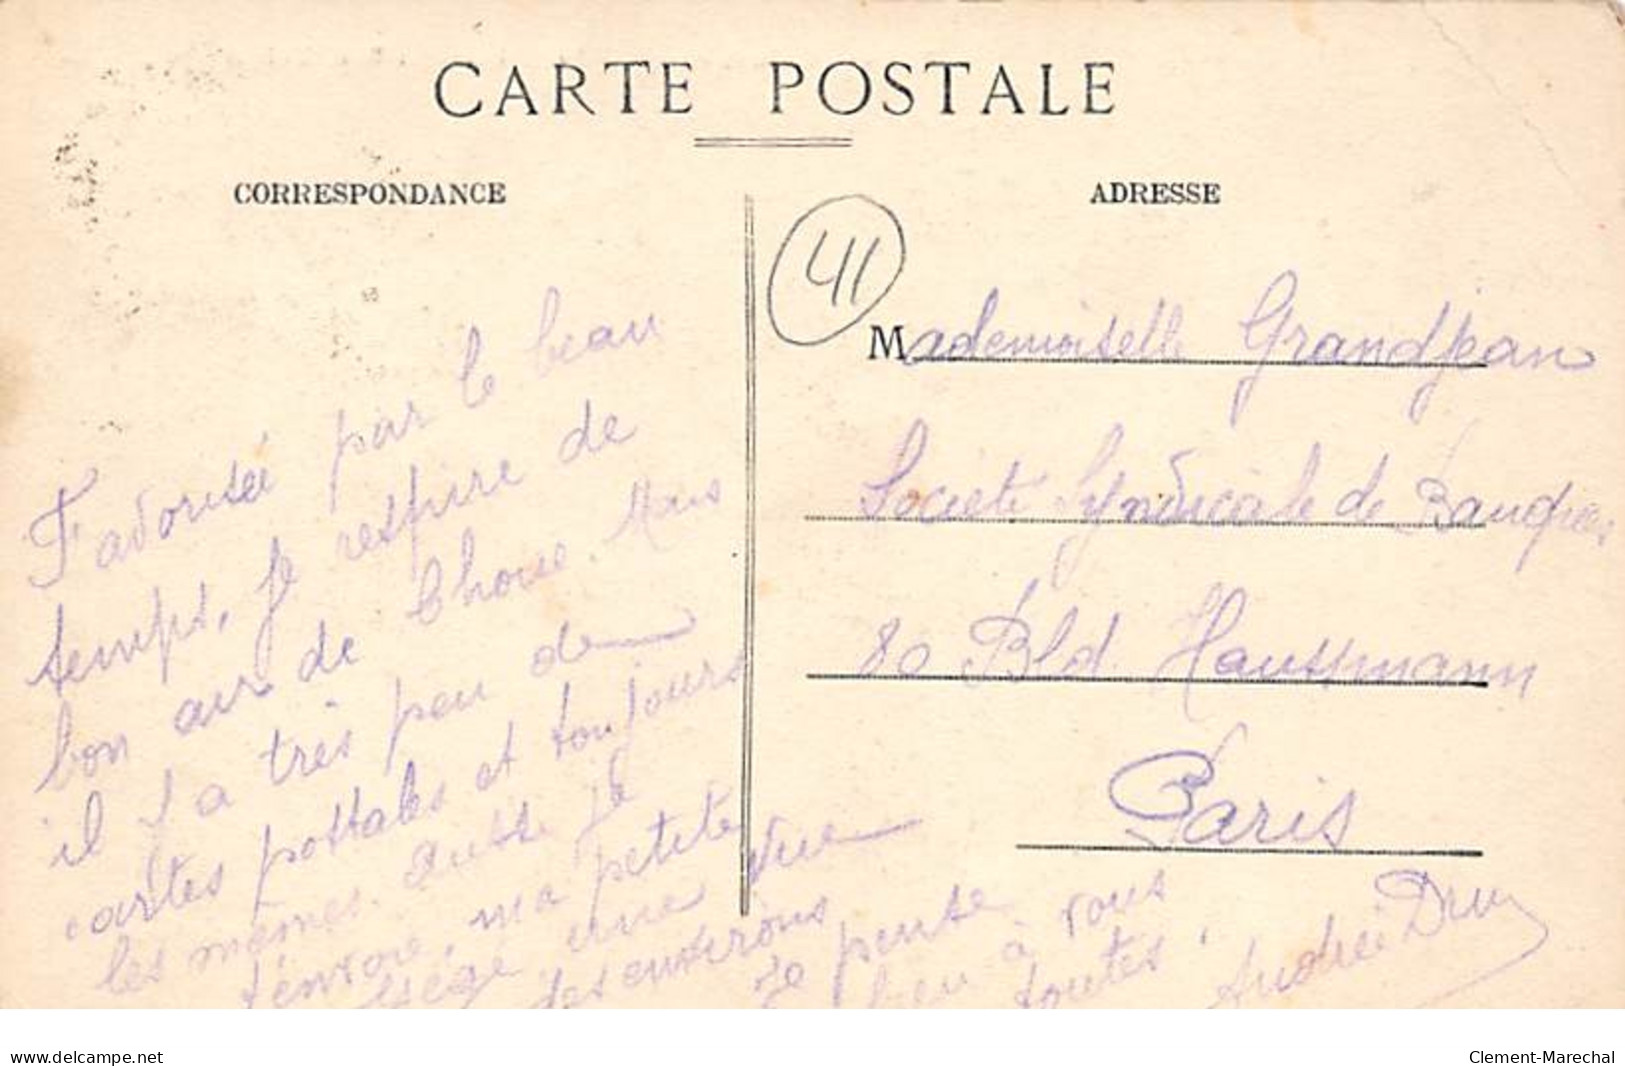 CARTE POSTALE
CORRESPONDANCE
ADRESSE
41
Favorisée par le beau
temps, je respire de
bon air de Choue. Mais
il y a très peu de
cartes postales et toujours
les mêmes. aussi je
t'envoie, ma petite
une vue
des environs
Je pense
bien à vous
toutes.
Andrée
Mademoiselle Grandjean
Societe Syndicale de Banques
80 Bld. Haussmann
Paris
delcampe.net
Clement-Marechal